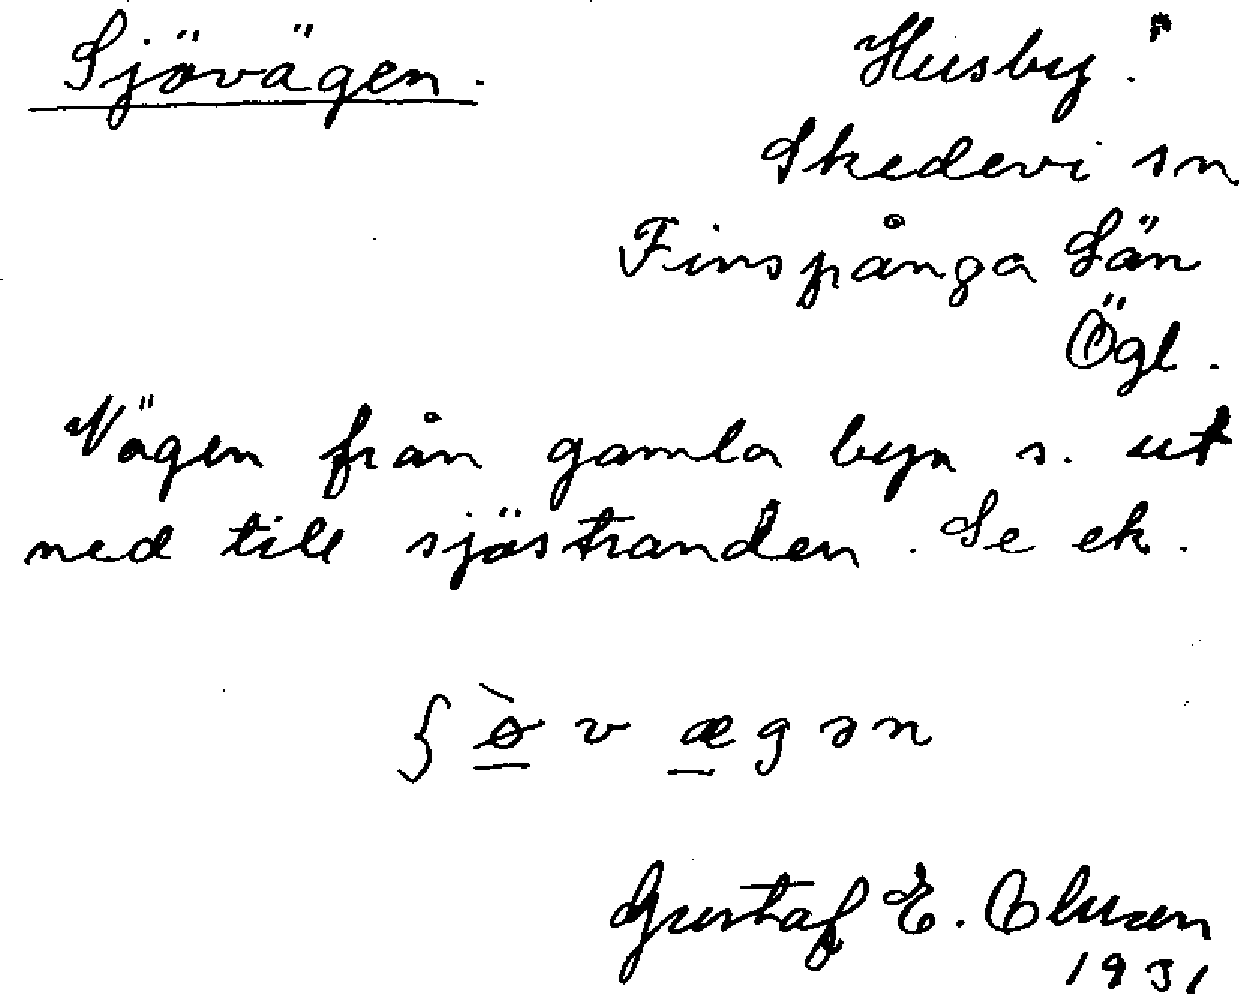 Sjövägen.
Husby.
Skedevi sn
Finspånga Län
Ögl.
Vägen från gamla byn s. ut
ned till sjöstranden. Se ek.
Gustaf E.
1931